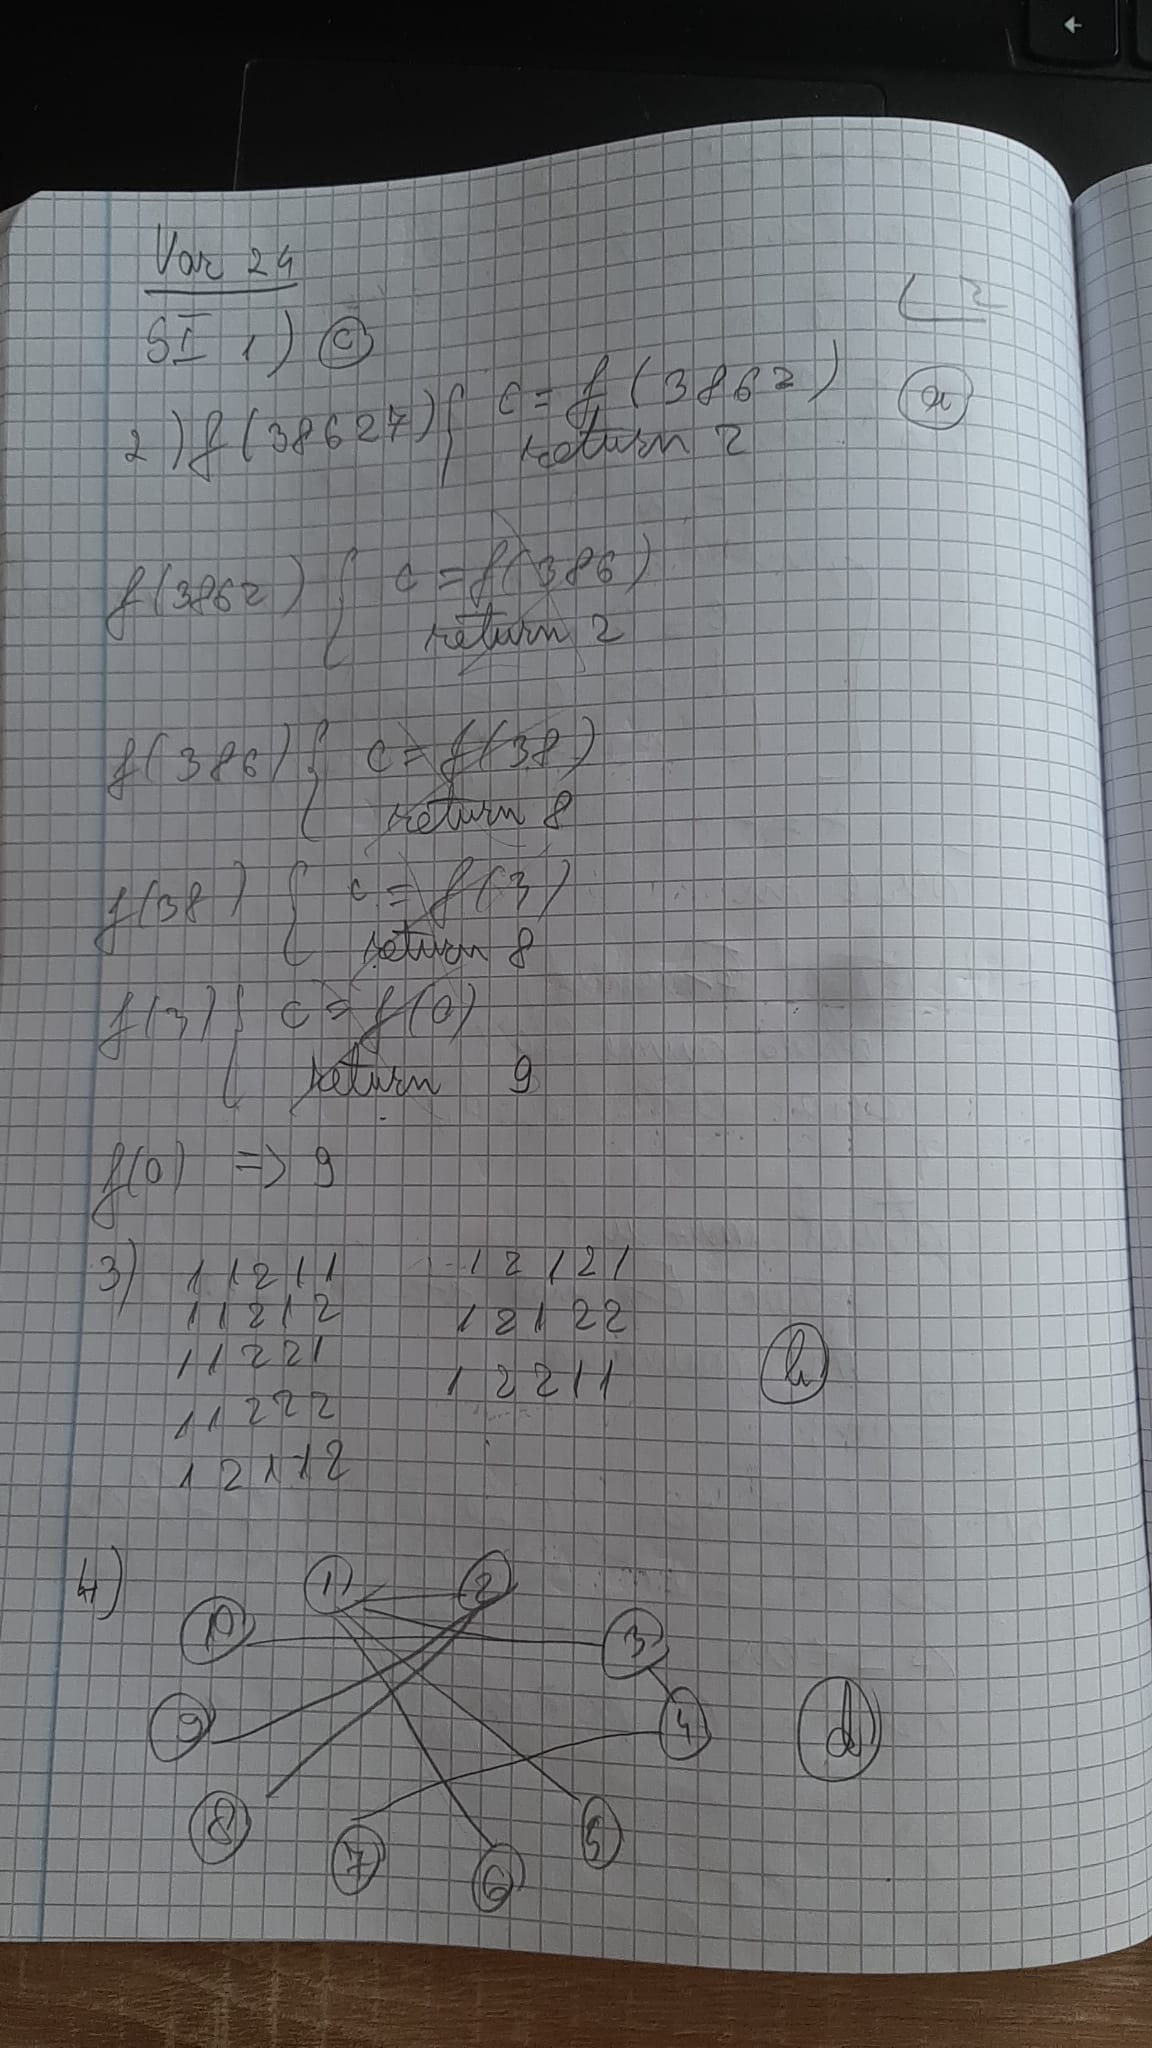 Var 24
SI 1) c
2) f(38627) { c = f(3862) a
return 2
f(3862) { c = f(386)
return 2
f(386) { c = f(38)
return 8
f(38) { c = f(3)
return 8
f(3) { c = f(0)
return 9
f(0) => 9
3) 11211 12121
11212 12122
11221 12211 b
11222
12112
4) 1 2
10 3
9 4 d
8 7 6 5